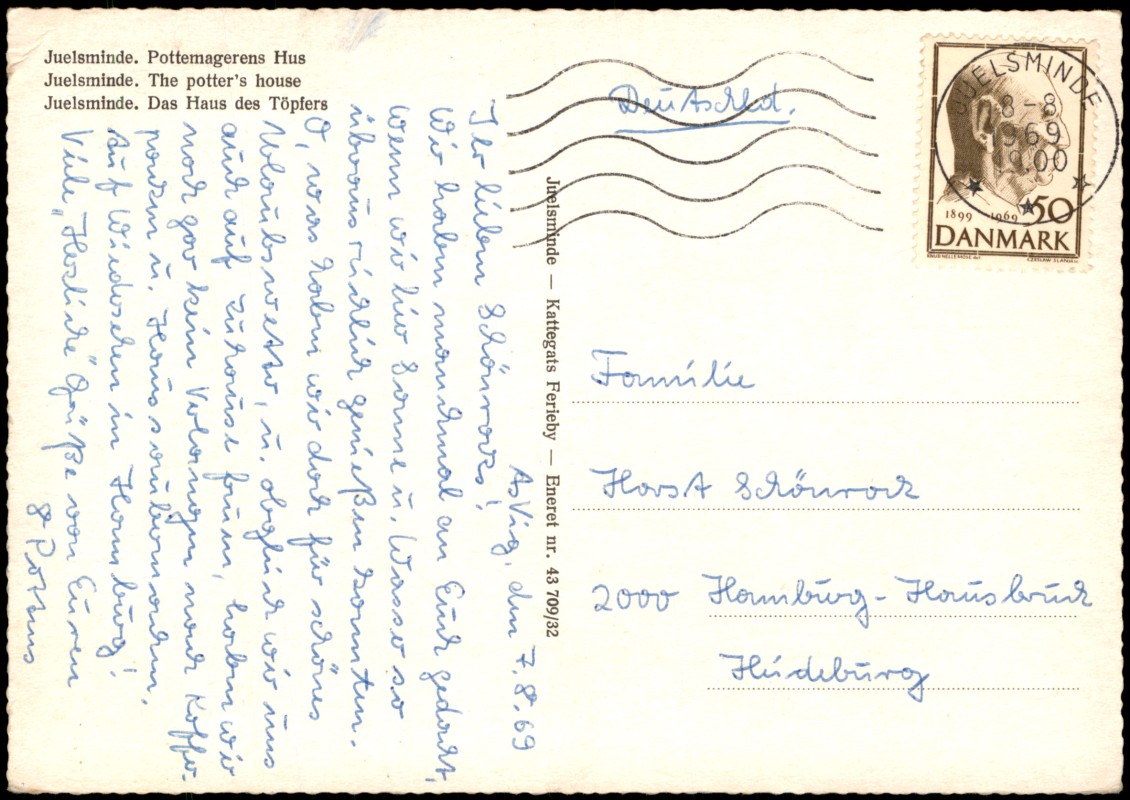 Juelsminde. Pottemagerens Hus
Juelsminde. The potter's house
Juelsminde. Das Haus des Töpfers
Asvig, den 7.8.69
Ihr lieben Schönrocks!
Wir haben manchmal an Euch gedacht,
wenn wir hier Sonne u. Wasser so
überaus reichlich genießen konnten.
O, was haben wir doch für schönes
Urlaubswetter, u. obgleich wir uns
auch auf zuhause freuen, haben wir
noch gar kein Verlangen nach Koffer-
packen u. Haussaubermachen.
Auf Wiedersehen in Hamburg!
Viele „Herzliche" Grüße von Euren
8 Pottens
Juelsminde — Kattegats Ferieby — Eneret nr. 43 709/32
Deutschld.
JUELSMINDE
8-8
1969
19.00
1899 1969 50
DANMARK
Familie
Horst Schönrock
2000 Hamburg-Hausbruch
Heideburg